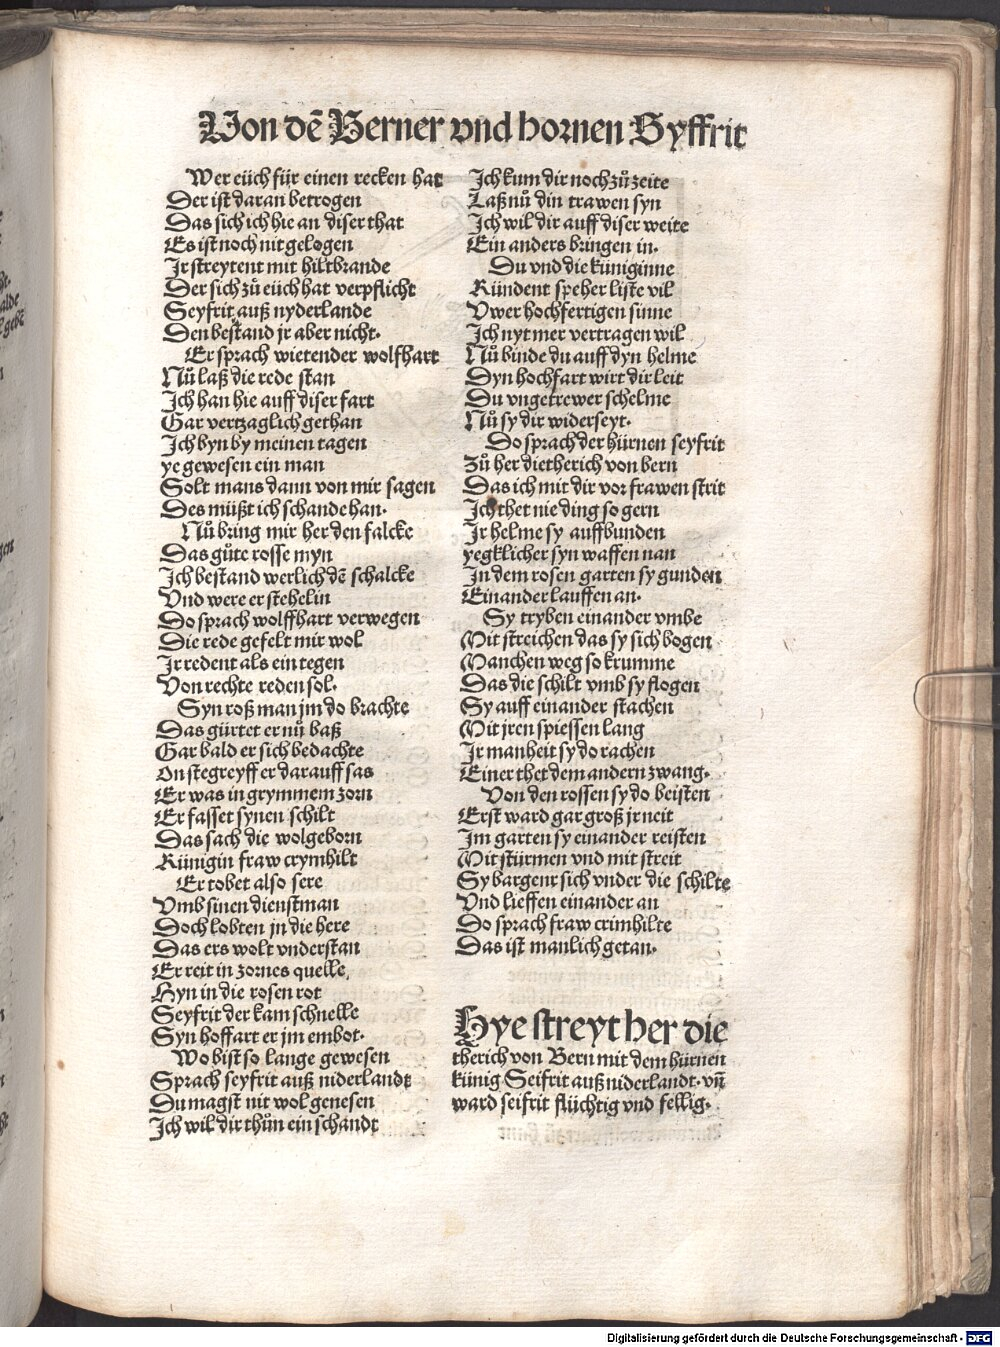 Von dē Berner vnd hornen Syffrit
Wer eüch für einen recken hat
Der ist daran betrogen
Das sich ich hie an diser that
Es ist noch nit gelogen
Ir streytent mit hiltbrande
Der sich zů eüch hat verpflicht
Seyfrit auß nyderlande
Den bestand jr aber nicht.
Er sprach wietender wolfhart
Nů laß die rede stan
Ich han hie auff diser fart
Gar vertzaglich gethan
Ich byn by meinen tagen
ye gewesen ein man
Solt mans dann von mir sagen
Des müßt ich schande han.
Nů bring mir her den falcke
Das gůte rosse myn
Ich bestand werlich dē schalcke
Vnd were er stehelin
Do sprach wolffhart verwegen
Die rede gefelt mir wol
Ir redent als ein tegen
Von rechte reden sol.
Syn roß man jm do brachte
Das gürtet er nů baß
Gar bald er sich bedachte
On stegreyff er darauff sas
Er was in grymmem zorn
Er fasset synen schilt
Das sach die wolgeborn
Künigin fraw crymhilt
Er tobet also sere
Vmb sinen dienstman
Doch lobten jn die here
Das ers wolt vnderstan
Er reit in zornes quelle
Hyn in die rosen rot
Seyfrit der kam schnelle
Syn hoffart er jm embot.
Wo bist so lange gewesen
Sprach seyfrit auß niderlandt
Du magst nit wol genesen
Ich wil dir thůn ein schandt
Ich kum dir noch zů zeite
Laß nů din trawen syn
Ich wil dir auff diser weite
Ein anders bringen in.
Du vnd die küniginne
Kündent speher liste vil
Vwer hochfertigen sinne
Ich nyt mer vertragen wil
Nů binde du auff dyn helme
Dyn hochfart wirt dir leit
Du vngetrewer schelme
Nů sy dir widerseyt.
Do sprach der hürnen seyfrit
Zů her dietherich von bern
Das ich mit dir vor frawen strit
Ich thet nie ding so gern
Ir helme sy auffbunden
yegklicher syn waffen nan
In dem rosen garten sy gunden
Einander lauffen an.
Sy tryben einander vmbe
Mit streichen das sy sich bogen
Manchen weg so krumme
Das die schilt vmb sy flogen
Sy auff einander stachen
Mit jren spiessen lang
Ir manheit sy do rachen
Einer thet dem andern zwang.
Von den rossen sy do beisten
Erst ward gar groß jr neit
Im garten sy einander reisten
Mit stürmen vnd mit streit
Sy bargent sich vnder die schilte
Vnd lieffen einander an
Do sprach fraw crimhilte
Das ist manlich getan.
Hye streyt her die
therich von Bern mit dem hürnen
künig Seifrit auß niderlandt. vñ
ward seifrit flüchtig vnd fellig.
Digitalisierung gefördert durch die Deutsche Forschungsgemeinschaft - DFG